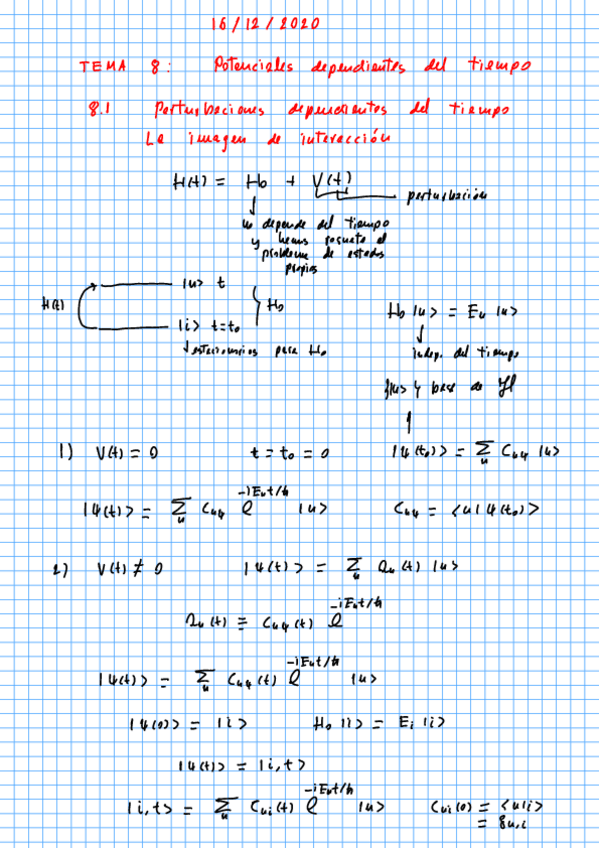 16/12/2020
TEMA 8: Potenciales dependientes del tiempo
8.1 Perturbaciones dependientes del tiempo
La imagen de interacción
H(t) = H₀ + V(t)
perturbación
no depende del tiempo
y hemos resuelto el
problema de estados
propios
|n> t
H(t)
H₀
|i> t=t₀
estacionarios para H₀
H₀ |n> = Eₙ |n>
indep. del tiempo
{|n>} base de ℋ
1) V(t) = 0 t = t₀ = 0 |ψ(t₀)> = Σₙ Cₙψ |n>
|ψ(t)> = Σₙ Cₙψ e^(-iEₙt/ħ) |n> Cₙψ = <n|ψ(t₀)>
2) V(t) ≠ 0 |ψ(t)> = Σₙ aₙ(t) |n>
aₙ(t) = Cₙψ(t) e^(-iEₙt/ħ)
|ψ(t)> = Σₙ Cₙψ(t) e^(-iEₙt/ħ) |n>
|ψ(0)> = |i> H₀ |i> = Eᵢ |i>
|ψ(t)> = |i,t>
|i,t> = Σₙ Cₙᵢ(t) e^(-iEₙt/ħ) |n> Cₙᵢ(0) = <n|i>
= δn,i